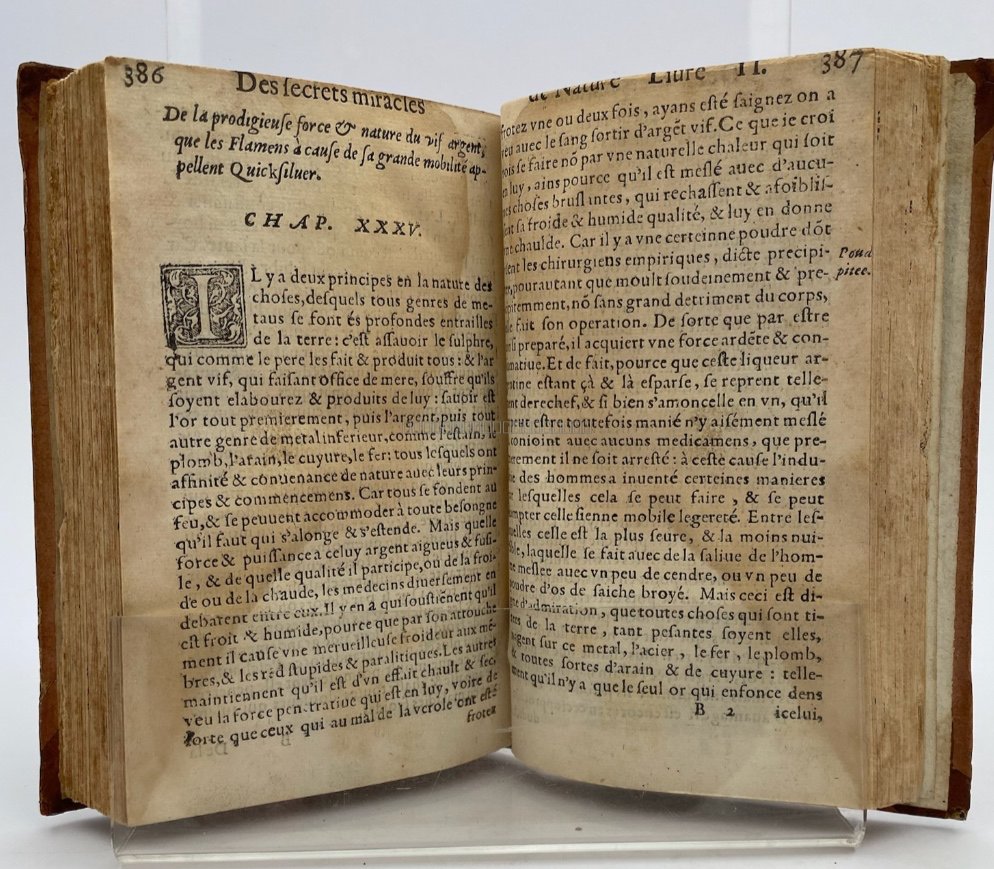 386
Des ſecrets miracles
De la prodigieuſe force & nature du vif argent,
que les Flamens à cauſe de ſa grande mobilité ap-
pellent Quickſiluer.
CHAP. XXXV.
IL y a deux principes en la nature des
choſes, deſquels tous genres de me-
taus ſe font és profondes entrailles
de la terre: c'eſt aſſauoir le ſulphre,
qui comme le pere les fait & produit tous: & l'ar
gent vif, qui faiſant office de mere, ſouffre qu'ils
ſoyent elabourez & produits de luy: ſauoir eſt
l'or tout premierement, puis l'argent, puis tout
autre genre de metal inferieur, comme l'eſtain, le
plomb, l'arain, le cuyure, le fer: tous leſquels ont
affinité & conuenance de nature auec leurs prin-
cipes & commencemens. Car tous ſe fondent au
feu, & ſe peuuent accommoder à toute beſongne
qu'il faut qui s'alonge & s'eſtende. Mais quelle
force & puiſſance a celuy argent aigueus & fuſi-
le, & de quelle qualité il participe, ou de la froi-
de ou de la chaude, les medecins diuerſement en
debatent entre eux. Il y en a qui ſouſtiēnent qu'il
eſt froit & humide, pource que par ſon attouche
ment il cauſe vne merueilleuſe froideur aux mē-
bres, & les rēd ſtupides & paralitiques. Les autres
maintiennent qu'il eſt d'vn effait chault & ſec,
veu la force penetratiue qui eſt en luy, voire de
ſorte que ceux qui au mal de la verole ont eſté
frotez
de Nature Liure II.
387
frotez vne ou deux fois, ayans eſté ſaignez on a
veu auec le ſang ſortir d'argēt vif. Ce que ie croi
ſe faire nō par vne naturelle chaleur qui ſoit
en luy, ains pource qu'il eſt meſlé auec d'aucu-
choſes bruſlantes, qui rechaſſent & afoibliſ-
ſa froide & humide qualité, & luy en donne
chaulde. Car il y a vne certeinne poudre dōt
les chirurgiens empiriques, dicte precipi-
pourautant que moult ſoudeinement & pre-
nō ſans grand detriment du corps,
fait ſon operation. De ſorte que par eſtre
preparé, il acquiert vne force ardēte & con-
Et de fait, pource que ceſte liqueur ar-
eſtant çà & là eſparſe, ſe reprent telle-
derechef, & ſi bien s'amoncelle en vn, qu'il
peut eſtre toutefois manié n'y aiſément meſlé
conioint auec aucuns medicamens, que pre-
il ne ſoit arreſté: à ceſte cauſe l'indu-
des hommes a inuenté certeines manieres
leſquelles cela ſe peut faire, & ſe peut
celle ſienne mobile legereté. Entre leſ-
celle eſt la plus ſeure, & la moins nui-
laquelle ſe fait auec de la ſaliue de l'hom-
meſlee auec vn peu de cendre, ou vn peu de
poudre d'os de ſaiche broyé. Mais ceci eſt di-
d'admiration, que toutes choſes qui ſont ti-
de la terre, tant peſantes ſoyent elles,
ſur ce metal, l'acier, le fer, le plomb,
& toutes ſortes d'arain & de cuyure: telle-
ment qu'il n'y a que le ſeul or qui enfonce dens
B 2 icelui,
Poud
pitee.